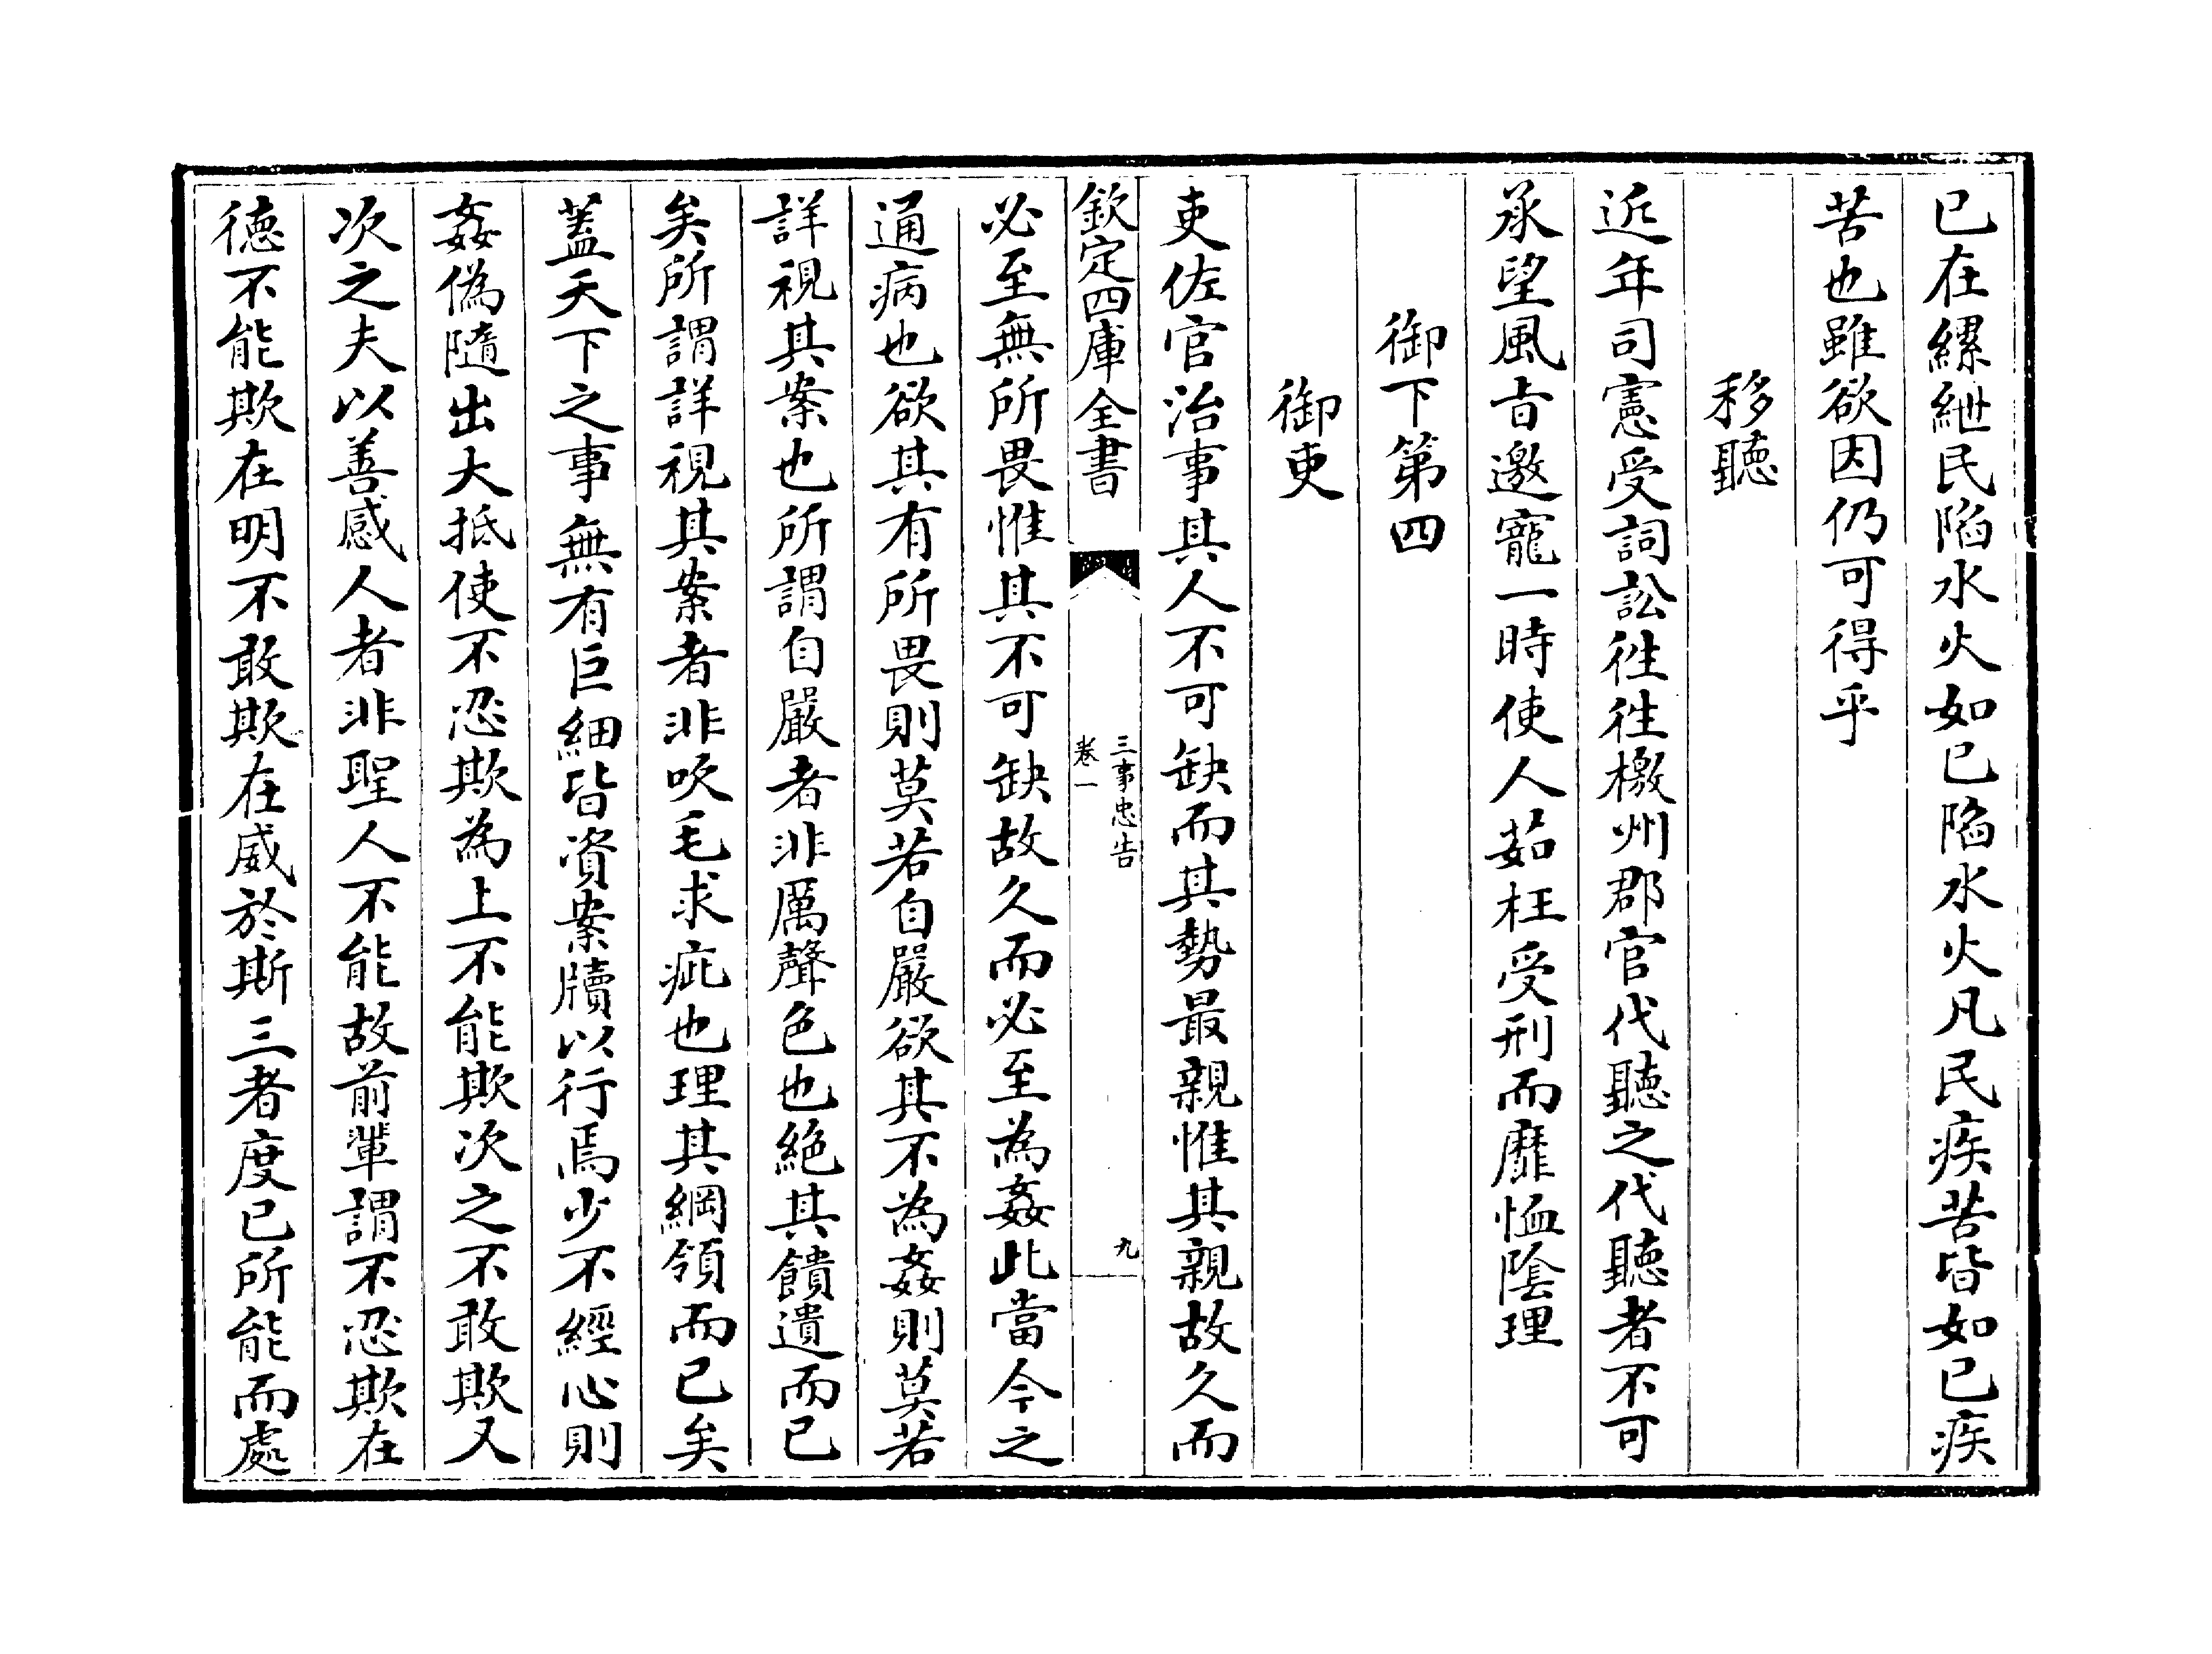 已在縲紲民陷水火如已陷水火凡民疾苦皆如已疾
苦也雖欲因仍可得乎
移聽
近年司憲受詞訟徃徃檄州郡官代聽之代聽者不可
承望風㫖邀寵一時使人茹枉受刑而靡恤隂理
御下第四
御吏
吏佐官治事其人不可缺而其勢最親惟其親故久而
欽定四庫全書
三事忠告
卷一
九
必至無所畏惟其不可缺故久而必至為姦此當今之
通病也欲其有所畏則莫若自嚴欲其不為姦則莫若
詳視其案也所謂自嚴者非厲聲色也絶其饋遺而已
矣所謂詳視其案者非吹毛求疵也理其綱領而已矣
蓋天下之事無有巨細皆資案牘以行焉少不經心則
姦偽隨出大抵使不忍欺為上不能欺次之不敢欺又
次之夫以善感人者非聖人不能故前輩謂不忍欺在
徳不能欺在明不敢欺在威於斯三者度已所能而處